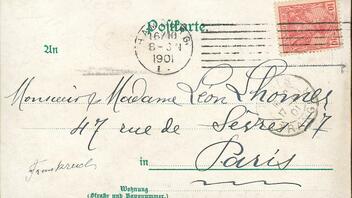 Postkarte.
16/10
8-9 N
1901
An
Monsieur Madame Leon Lhomer
47 rue de Sèvres 47
Frankreich
in Paris
Wohnung
(Straße und Hausnummer)